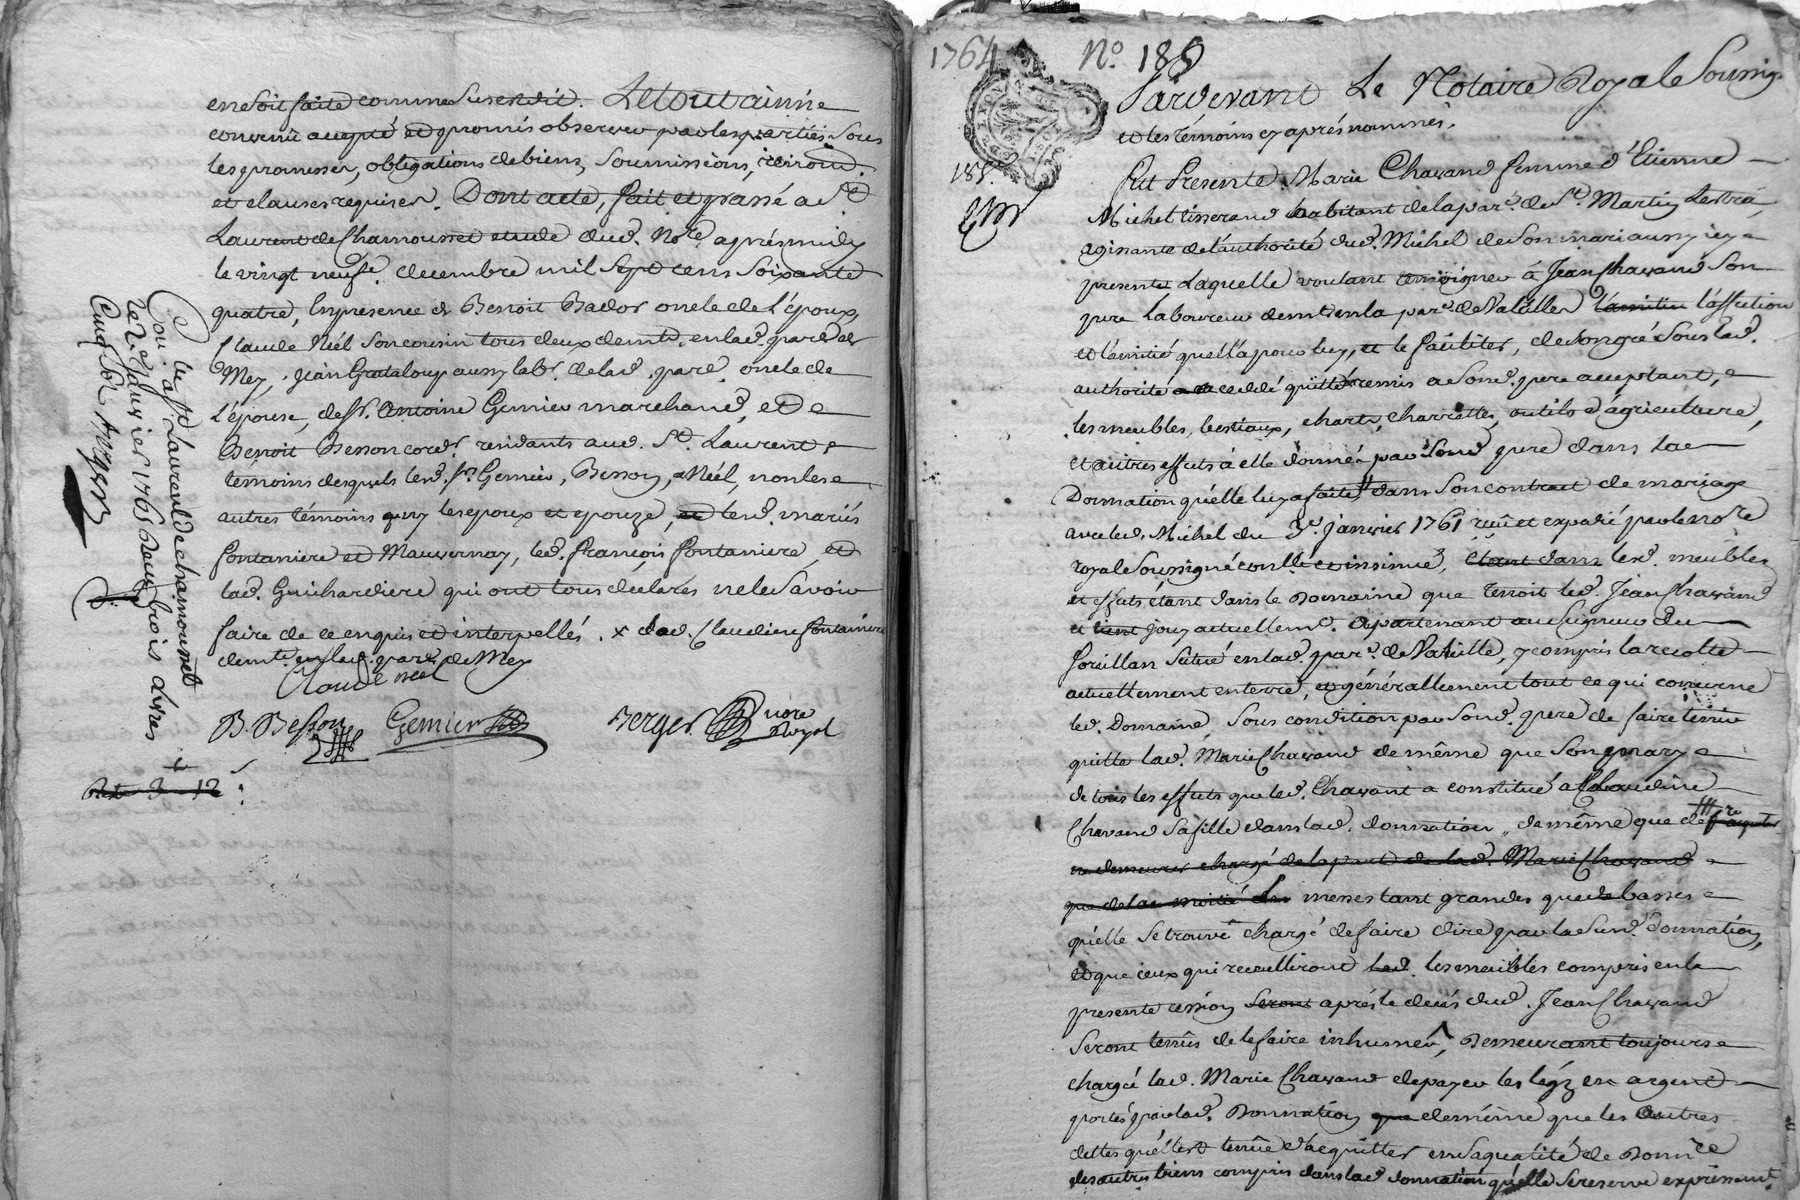 en soit faite comme susesdit. Le tout ainsi
convenû accepté et promis observer par les parties sous
les promesses, obligations de biens, soumissions, renonc.
et clauses requises. Dont acte, fait et passé a St
Laurent de Chamousset etude dud. Nore. après midy
le vingt neufe. decembre mil sept cens soixante
quatre, En presence de Benoit Bador oncle de L'époux,
Claude Néél son cousin tous deux demts. en lad. paroe de
Mey, Jean Grataloup aussy labr. de lad. paroe. oncle de
L'épouse, de sr. Antoine Gemier marchand, et de
Benoit Besson cordr. residants aud. St. Laurent
témoins desquels lesd. srs Gemier, Besson, Néél, non les
autres témoins quy les epoux et epouze, et lesd. mariés
fontaniere et Mauvernay, led. françois fontaniere, et
lad. Guichardiere qui ont tous declarés ne le savoir
faire de ce enquis et interpellés. x de lad. Claudine fontaniere
demte. en lad. paroe. de Mey
Claude neel
B. Besson Gemier Berger nore royal
Con. à St Laurent de chamousset
le 2e Janvier 1765 Reçu trois livres
cinq sols
Reste 3 - 12
1764 No. 185
Pardevant Le Notaire Royale Soussigé
et les témoins cy aprés nommés,
185.
fut Presente Marie Chavand femme d'Etienne
Michel tisserand habitant de la pare. de St. Martin Lestra,
agissante de l'authorité dud. Michel de son mari aussy icy
presente Laquelle voulant temoigner à Jean Chavand son
pere Laboureur demt en la pare. de Valeilles l'amitié l'affection
et l'amitié quell'a pour luy, et le faciliter, de son gré sous lad.
authorité a cedé quitté remis a sond. pere acceptant,
les meubles, bestiaux, charts, charrettes, outils d'agriculture,
et autres effets à elle donnés par sond pere dans la
Donnation qu'elle luy a faite dans son contract de mariage
avec led. Michel du 3e. janvier 1761 reçû et expedié par le nore
royale soussigné conllé et insinué, étant dans lesd. meubles
et effets étant dans le Domaine que tenoit led. Jean Chavand
et tient jouy actuellemt. apartenant au seigneur du
forillan situé en lad. pare. de Valeille, y compris la recolte
actuellement en terre, et générallement tout ce qui concerne
led. Domaine, sous condition par sond. pere de faire tenir
quitte lad. Marie Chavand de même que son mary
de tous les effets que led. Chavant a constitué a Claudine
Chavand sa fille dans lad. donnation, de même que de
en demeurer chargé de la part de lad. Marie Chavand
que de la moitié des messes tant grandes que de basses
qu'elle se trouve chargé de faire dire par la susd. donnation,
et que ceux qui receulliront lesd. les meubles compris en la
presente cession seront aprés le decés dud. Jean Chavand
seront tenûs de le faire inhumér, Demeurant toujours
chargée lad. Marie Chavand de payer les légs en argent
portés par lad. Donnation que de même que les autres
dettes qu'elle est tenûe d'acquitter en sa qualité de Donnre
des autres biens compris dans lad donnation qu'elle se reserve expréssemt.